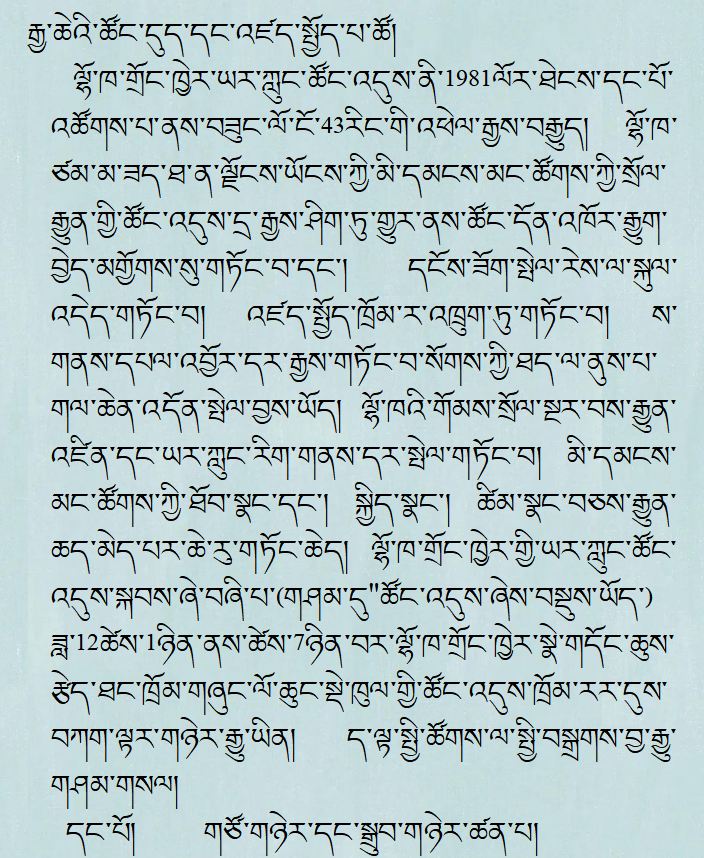 རྒྱ་ཆེའི་ཚོང་དུད་དང་འཛད་སྤྱོད་པ་ཚོ།
ལྷོ་ཁ་གྲོང་ཁྱེར་ཡར་ཀླུང་ཚོང་འདུས་ནི་1981ལོར་ཐེངས་དང་པོ་
འཚོགས་པ་ནས་བཟུང་ལོ་ངོ་43རིང་གི་འཕེལ་རྒྱས་བརྒྱུད། ལྷོ་ཁ་
ཙམ་མ་ཟད་ཐ་ན་ལྗོངས་ཡོངས་ཀྱི་མི་དམངས་མང་ཚོགས་ཀྱི་སྲོལ་
རྒྱུན་གྱི་ཚོང་འདུས་དྲ་རྒྱས་ཤིག་ཏུ་གྱུར་ནས་ཚོང་དོན་འཁོར་རྒྱུག་
བྱེད་མགྱོགས་སུ་གཏོང་བ་དང་། དངོས་ཟོག་སྤེལ་རེས་ལ་སྐུལ་
འདེད་གཏོང་བ། འཛད་སྤྱོད་ཁྲོམ་ར་འཁྲུག་ཏུ་གཏོང་བ། ས་
གནས་དཔལ་འབྱོར་དར་རྒྱས་གཏོང་བ་སོགས་ཀྱི་ཐད་ལ་ནུས་པ་
གལ་ཆེན་འདོན་སྤེལ་བྱས་ཡོད། ལྷོ་ཁའི་གོམས་སྲོལ་སྔར་བས་རྒྱུན་
འཛིན་དང་ཡར་ཀླུང་རིག་གནས་དར་སྤེལ་གཏོང་བ། མི་དམངས་
མང་ཚོགས་ཀྱི་ཐོབ་སྣང་དང་། སྐྱིད་སྣང་། ཚིམ་སྣང་བཅས་རྒྱུན་
ཆད་མེད་པར་ཆེ་རུ་གཏོང་ཆེད། ལྷོ་ཁ་གྲོང་ཁྱེར་གྱི་ཡར་ཀླུང་ཚོང་
འདུས་སྐབས་ཞེ་བཞི་པ་(གཤམ་དུ"ཚོང་འདུས་ཞེས་བསྡུས་ཡོད་)
ཟླ་12ཚེས་1ཉིན་ནས་ཚེས་7ཉིན་བར་ལྷོ་ཁ་གྲོང་ཁྱེར་སྣེ་གདོང་ཆུས་
རྩེད་ཐང་ཁྲོམ་གཞུང་ལོ་ཆུང་སྡེ་ཁུལ་གྱི་ཚོང་འདུས་ཁྲོམ་རར་དུས་
བཀག་ལྟར་གཉེར་རྒྱུ་ཡིན། ད་ལྟ་སྤྱི་ཚོགས་ལ་སྤྱི་བསྒྲགས་བྱ་རྒྱུ་
གཤམ་གསལ།
དང་པོ། གཙོ་གཉེར་དང་སྒྲུབ་གཉེར་ཚན་པ།